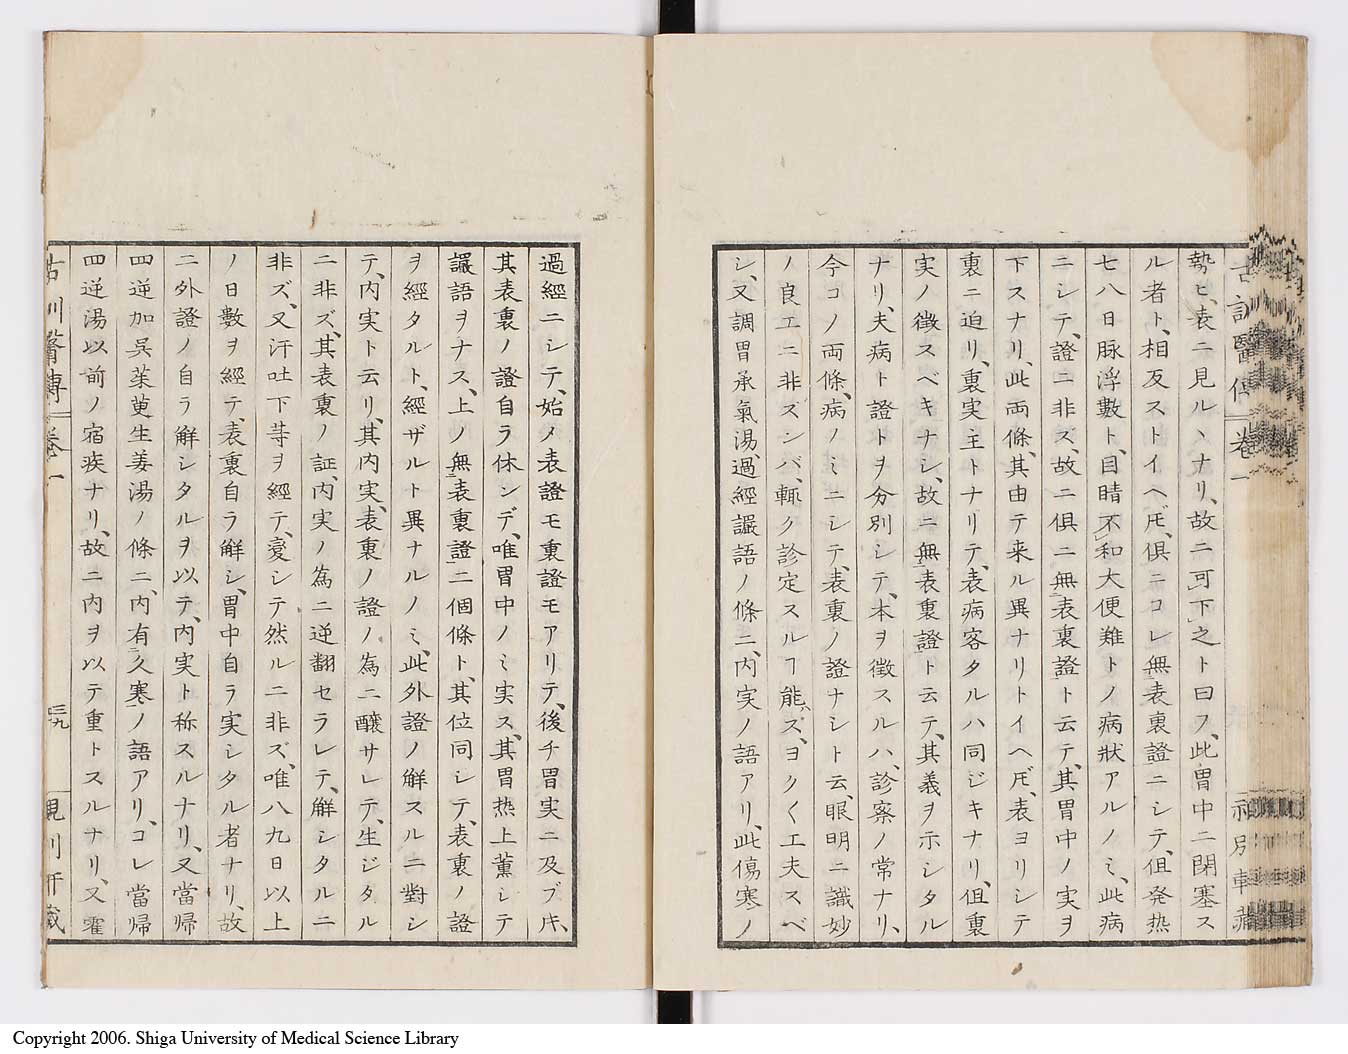 勢ヒ、表ニ見ルヽナリ、故ニ「可下」之ト曰フ、此胃中ニ閉塞ス
ル者ト、相反ストイヘ𪜈、倶ニコレ無表裏證ニシテ、但発熱
七八日脉浮數ト、目晴不和大便難トノ病狀アルノミ、此病
ニシテ、證ニ非ズ、故ニ倶ニ無表裏證ト云テ、其胃中ノ実ヲ
下スナリ、此両條、其由テ来ル異ナリトイヘ𪜈、表ヨリシテ
裏ニ迫リ、裏実主トナリテ、表病客タルハ同ジキナリ、但裏
実ノ徴スベキナシ、故ニ無表裏證ト云テ、其義ヲ示シタル
ナリ、夫病ト證トヲ分別シテ、本ヲ徴スルハ、診察ノ常ナリ、
今コノ両條、病ノミニシテ、表裏ノ證ナシト云、眼明ニ識妙
ノ良工ニ非ズンバ、輙ク診定スルヿ能ハズ、ヨク〱工夫スベ
シ、又調胃承氣湯、過經讝語ノ條ニ、内実ノ語アリ、此傷寒ノ
過經ニシテ、始メ表證モ裏證モアリテ、後チ胃実ニ及ブ𪜈、
其表裏ノ證自ラ休ンデ、唯胃中ノミ実ス、其胃热上薫シテ
讝語ヲナス、上ノ無表裏證二個條ト、其位同シテ、表裏ノ證
ヲ經タルト、經ザルト異ナルノミ、此外證ノ解スルニ對シ
テ、内実ト云リ、其内実、表裏ノ證ノ為ニ釀サレテ、生ジタル
ニ非ズ、其表裏ノ証、内実ノ為ニ逆翻セラレテ、解シタルニ
非ズ、又汗吐下等ヲ經テ、変シテ然ルニ非ズ、唯八九日以上
ノ日數ヲ經テ、表裏自ラ解シ、胃中自ラ実シタル者ナリ、故
ニ外證ノ自ラ解シタルヲ以テ、内実ト称スルナリ、又當帰
四逆加呉茱萸生姜湯ノ條ニ、内有久寒ノ語アリ、コレ當帰
四逆湯以前ノ宿疾ナリ、故ニ内ヲ以テ重トスルナリ、又霍
古訓醫傳 卷一 三九
Copyright 2006. Shiga University of Medical Science Library